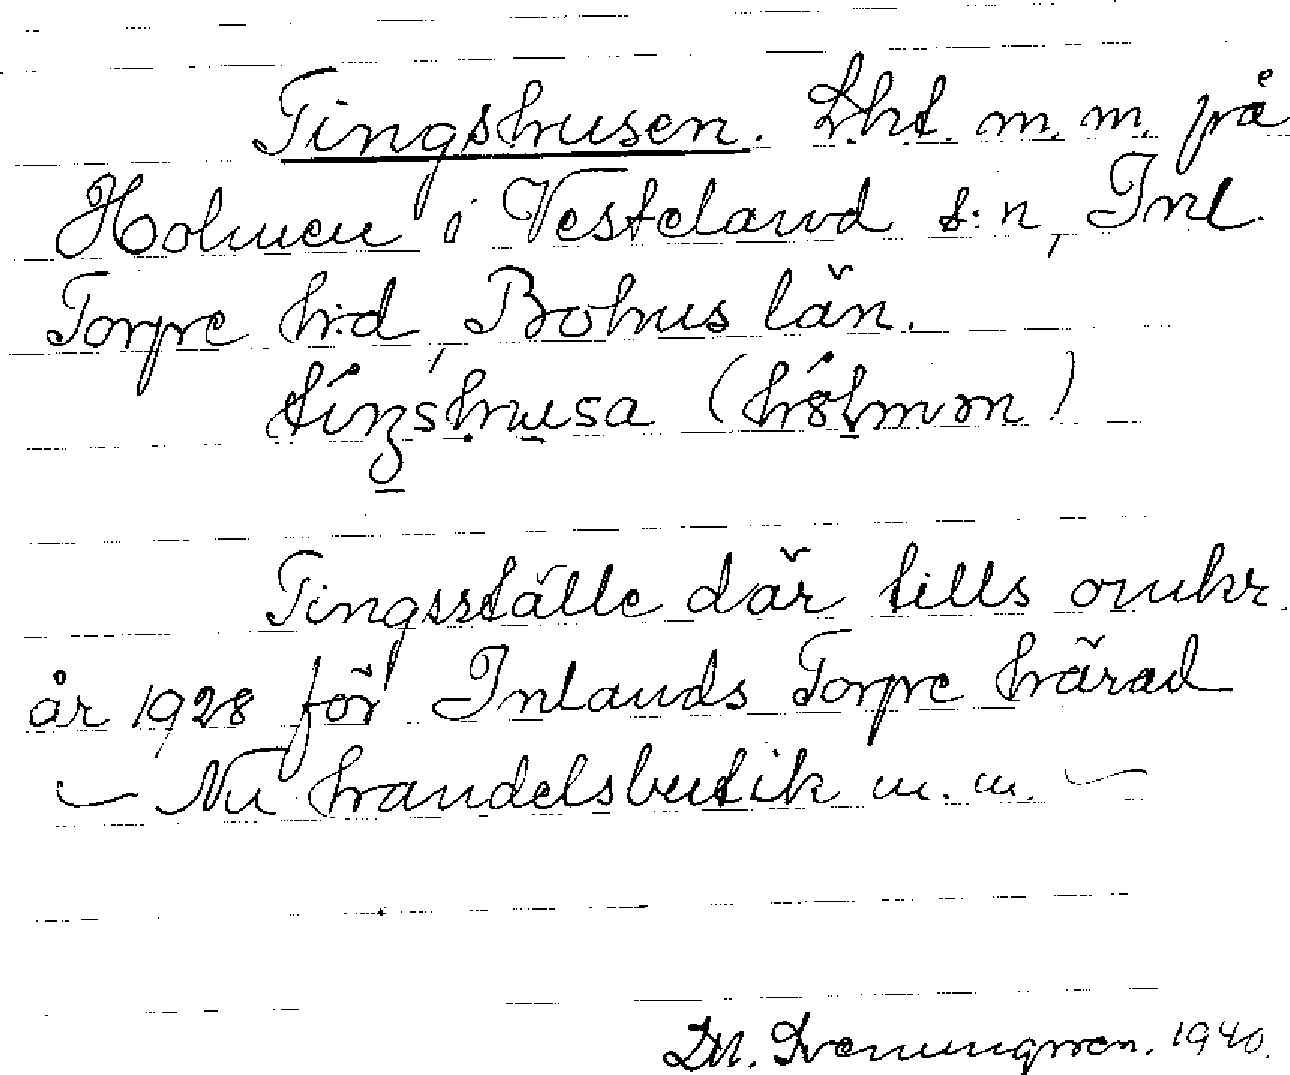 Tingshusen. Lht. m. m. på
Holmen i Vesteland s:n, Inl.
Torpe h:d, Bohus län.
tíŋshusa (hólmən)
Tingsställe där tills omkr.
år 1928 för Inlands Torpe härad
– Nu handelsbutik m. m. –
Sveningsson. 1940.